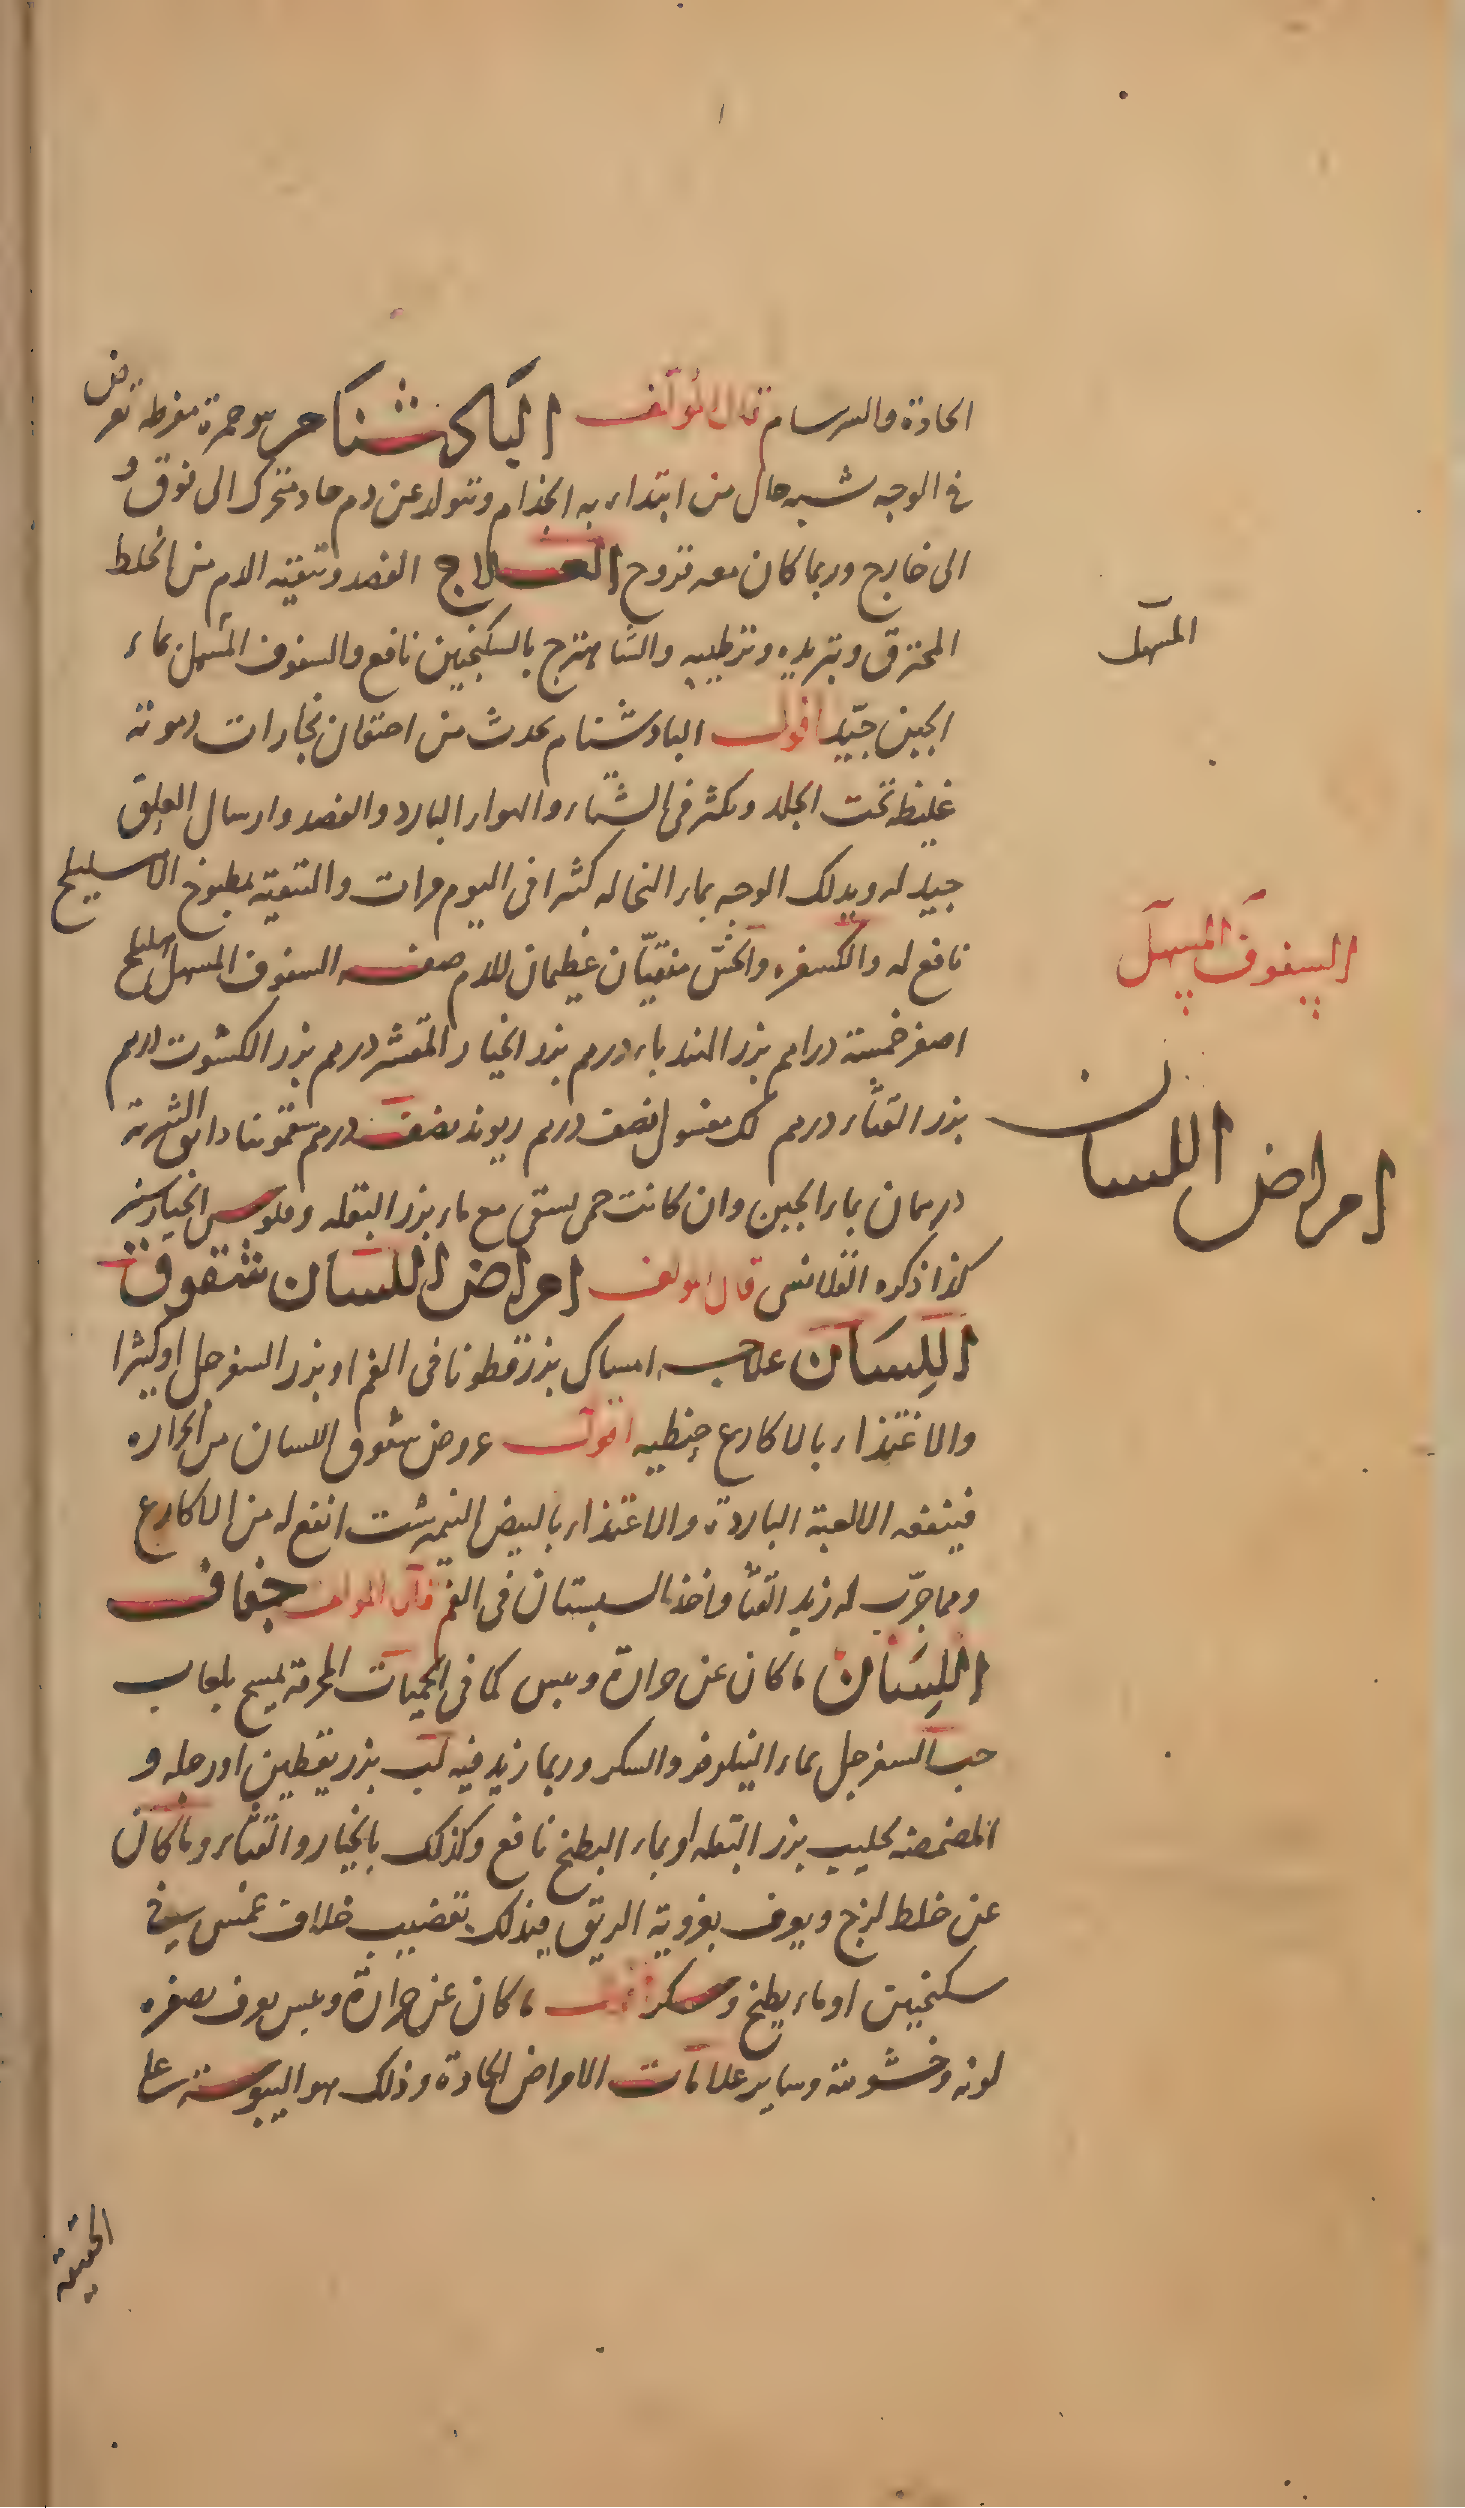 الحادة والسرسام قال المؤلف البادشنام هو حمرة مفرطة تعرض
في الوجه شبه حال من ابتداء به الجذام وتتولد عن دم حاد متحرك الى فوق و
الى خارج وربما كان معه قروح العلاج الفصد وتنقية الدم من الخلط
المحترق وتبريده وترطيبه والشاهترج بالسكنجبين نافع والسفوف المسهل بماء
الجبن جيد اقول البادشنام يحدث من احتقان بخارات دموية
غليظة تحت الجلد ويكثر في الشتاء والهواء البارد والفصد وارسال العلق
جيد له ويدلك الوجه بماء النخاله كثيرا في اليوم مرات والتنقية بمطبوخ الاهليلج
نافع له والكسفره والخس منقيان غظيمان للدم صفه السفوف المسهل اهليلج
اصفر خمسة دراهم بزر الهندباء درهم بزر الخيار المقشر درهم بزر الكشوت درهم
بزر القثاء درهم لك مغسول نصف درهم ريوند نصف درهم سقمونيا دانق الشربة
درهمان بماء الجبن وان كانت حمى يسقى مع ماء بزر البقله وفلوس الخيارشنبر
كذا ذكره القلانسى قال المولف امراض اللسان شقوق
اللسان علاجه امساك بزر قطونا فى الفم او بزر السفرجل او كثيرا
والاغتذاء بالاكارع حنطيه اقول عروض شقوق اللسان من الحراره
فينفعه الالعبة الباردة والاغتذاء بالبيض النيمرشت انفع له من الاكارع
ومما جرب له زبد القثا واخذ السبستان فى الفم قال المولف جفاف
اللسان ما كان عن حرارة ويبس كما فى الحميات المحرقة يمسح بلعاب
حب السفرجل بماء النيلوفر والسكر وربما زيد فيه لب بزر يقطين او رجله و
المضمضه بحليب بزر البقله او بماء البطيخ نافع وكذلك بالخيار والقثاء وما كان
عن خلط لزج ويعرف بغروية الريق فيدلك بقضيب خلاف غمس في
سكنجبين او ماء بطيخ وسكر اقول ما كان عن حرارة ويبس يعرف بصفره
لونه وخشونة وساير علامات الامراض الحادة وذلك هو اليبوسة على
الحقيقة
المسهل
السفوف المسهل
امراض اللسان